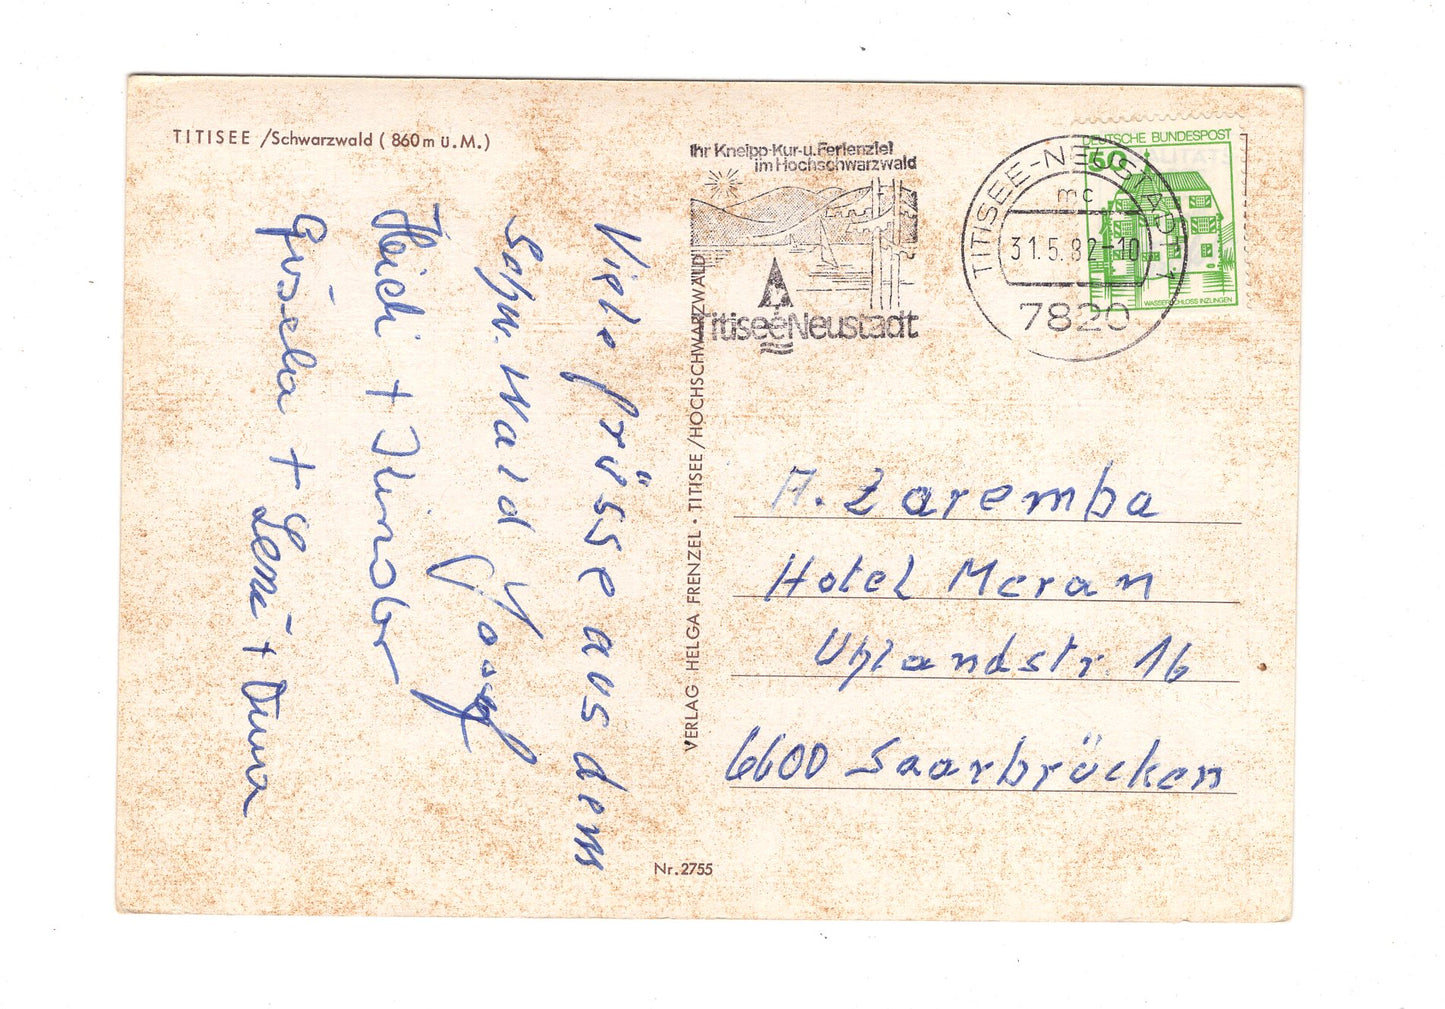 TITISEE /Schwarzwald ( 860 m ü. M.)
Viele Grüsse aus dem
Schw. Wald Josef
Heidi +
Gisela +
VERLAG HELGA FRENZEL · TITISEE/HOCHSCHWARZWALD
Nr. 2755
Ihr Kneipp-Kur-u. Ferienziel
im Hochschwarzwald
Titisee Neustadt
TITISEE-NEUSTADT 1
mc
31.5.82-10
7820
DEUTSCHE BUNDESPOST
50
WASSERSCHLOSS INZLINGEN
A. Zaremba
Hotel Meran
Uhlandstr. 16
6600 Saarbrücken